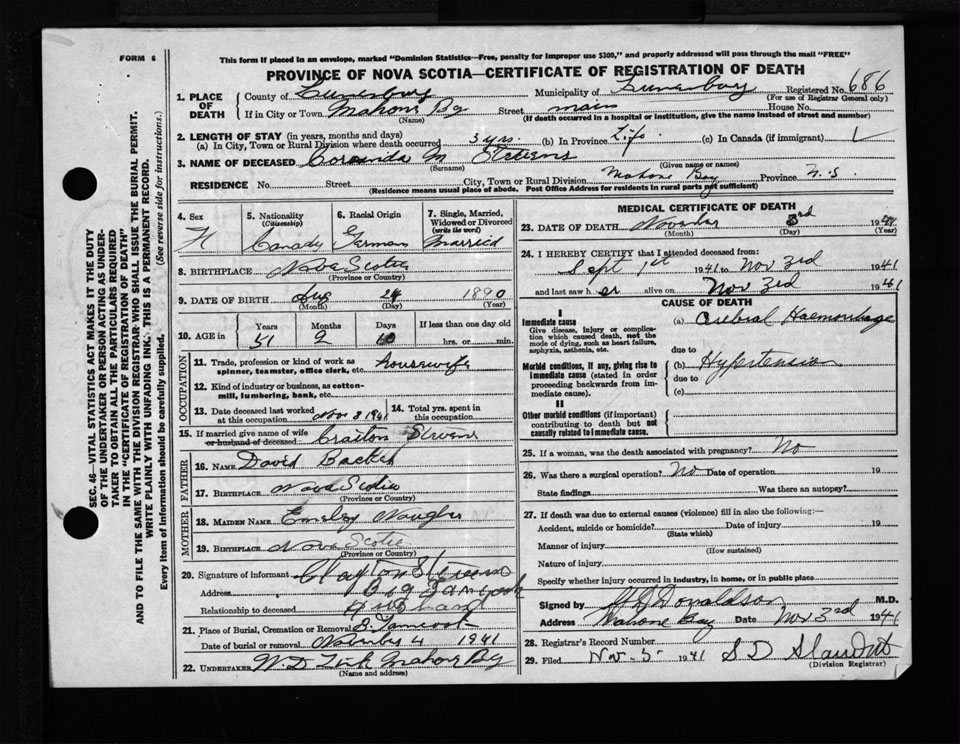 FORM 6
This form if placed in an envelope, marked "Dominion Statistics—Free, penalty for improper use $300," and properly addressed will pass through the mail "FREE"
PROVINCE OF NOVA SCOTIA—CERTIFICATE OF REGISTRATION OF DEATH
1. PLACE OF DEATH County of Lunenburg Municipality of Lunenburg Registered No. 686
(For use of Registrar General only)
If in City or Town Mahone By Street main House No.
(Name) (If death occurred in a hospital or institution, give the name instead of street and number)
2. LENGTH OF STAY (in years, months and days)
(a) In City, Town or Rural Division where death occurred 3 yrs. (b) In Province Life (c) In Canada (if immigrant)
3. NAME OF DECEASED M Stevens
(Surname) (Given name or names)
RESIDENCE No. Street City, Town or Rural Division Mahone Bay Province N.S.
(Residence means usual place of abode. Post Office Address for residents in rural parts not sufficient)
4. Sex F
5. Nationality (Citizenship) Canady
6. Racial Origin German
7. Single, Married, Widowed or Divorced (write the word) Married
8. BIRTHPLACE Nova Scotia
(Province or Country)
9. DATE OF BIRTH Aug 24 1890
(Month) (Day) (Year)
10. AGE in Years Months Days If less than one day old
51 2 10 hrs. or min.
OCCUPATION
11. Trade, profession or kind of work as spinner, teamster, office clerk, etc. housewife
12. Kind of industry or business, as cotton-mill, lumbering, bank, etc.
13. Date deceased last worked at this occupation Nov 3 1941
14. Total yrs. spent in this occupation
15. If married give name of wife or husband of deceased Stevens
FATHER
16. NAME David
17. BIRTHPLACE Nova Scotia
(Province or Country)
MOTHER
18. MAIDEN NAME Emeley
19. BIRTHPLACE Nova Scotia
(Province or Country)
20. Signature of informant Clayton Stevens
Address Big Tancook
Relationship to deceased Husband
21. Place of Burial, Cremation or Removal B. Tancook
Date of burial or removal November 4 1941
22. UNDERTAKER W. D. Mahone By
(Name and address)
MEDICAL CERTIFICATE OF DEATH
23. DATE OF DEATH 3rd 1941
(Month) (Day) (Year)
24. I HEREBY CERTIFY that I attended deceased from:
Sept 1st 1941 to Nov 3rd 1941
and last saw her alive on Nov 3rd 1941
CAUSE OF DEATH
I
Immediate cause (a) Cerebral Haemorrhage
Give disease, injury or complication which caused death, not the mode of dying, such as heart failure, asphyxia, asthenia, etc.
due to
Morbid conditions, if any, giving rise to immediate cause (stated in order proceeding backwards from immediate cause). (b) Hypertension
due to
(c)
II
Other morbid conditions (if important) contributing to death but not causally related to immediate cause.
25. If a woman, was the death associated with pregnancy? No
26. Was there a surgical operation? No Date of operation 19
State findings Was there an autopsy?
27. If death was due to external causes (violence) fill in also the following:—
Accident, suicide or homicide? Date of injury 19
(State which)
Manner of injury
(How sustained)
Nature of injury
Specify whether injury occurred in industry, in home, or in public place
Signed by Donaldson M.D.
Address Mahone Bay Date Nov 3rd 1941
28. Registrar's Record Number
29. Filed Nov-5- 1941 S D
(Division Registrar)
SEC. 46—VITAL STATISTICS ACT MAKES IT THE DUTY
OF THE UNDERTAKER OR PERSON ACTING AS UNDER-
TAKER TO OBTAIN ALL THE PARTICULARS REQUIRED
IN THE "CERTIFICATE OF REGISTRATION OF DEATH"
AND TO FILE THE SAME WITH THE DIVISION REGISTRAR WHO SHALL ISSUE THE BURIAL PERMIT.
WRITE PLAINLY WITH UNFADING INK. THIS IS A PERMANENT RECORD.
Every item of information should be carefully supplied. (See reverse side for instructions.)